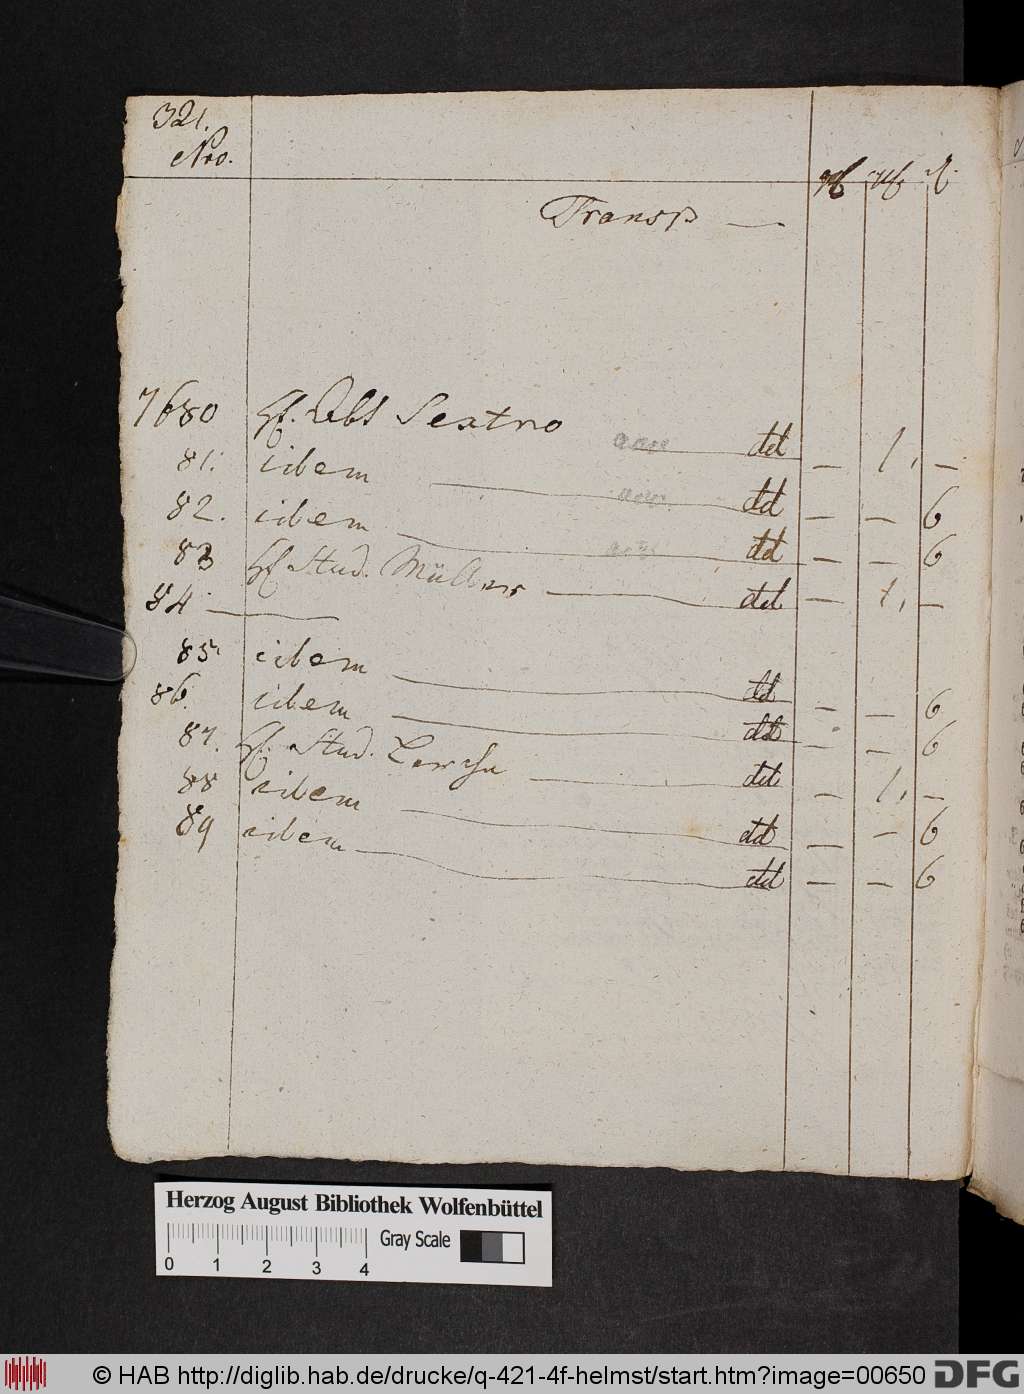 321.
Nro.
Transp —
7680 Hl. Abt Sextro dd — 1. —
81. idem dd — — 6
82. idem dd — — 6
83 Hl Stud. Müller dd — 1. —
84 —
85 idem dd — — 6
86. idem dd — — 6
87. Hl. Stud. dd — 1. —
88 idem dd — — 6
89 idem dd — — 6
Herzog August Bibliothek Wolfenbüttel
Gray Scale
0 1 2 3 4
© HAB http://diglib.hab.de/drucke/q-421-4f-helmst/start.htm?image=00650 DFG